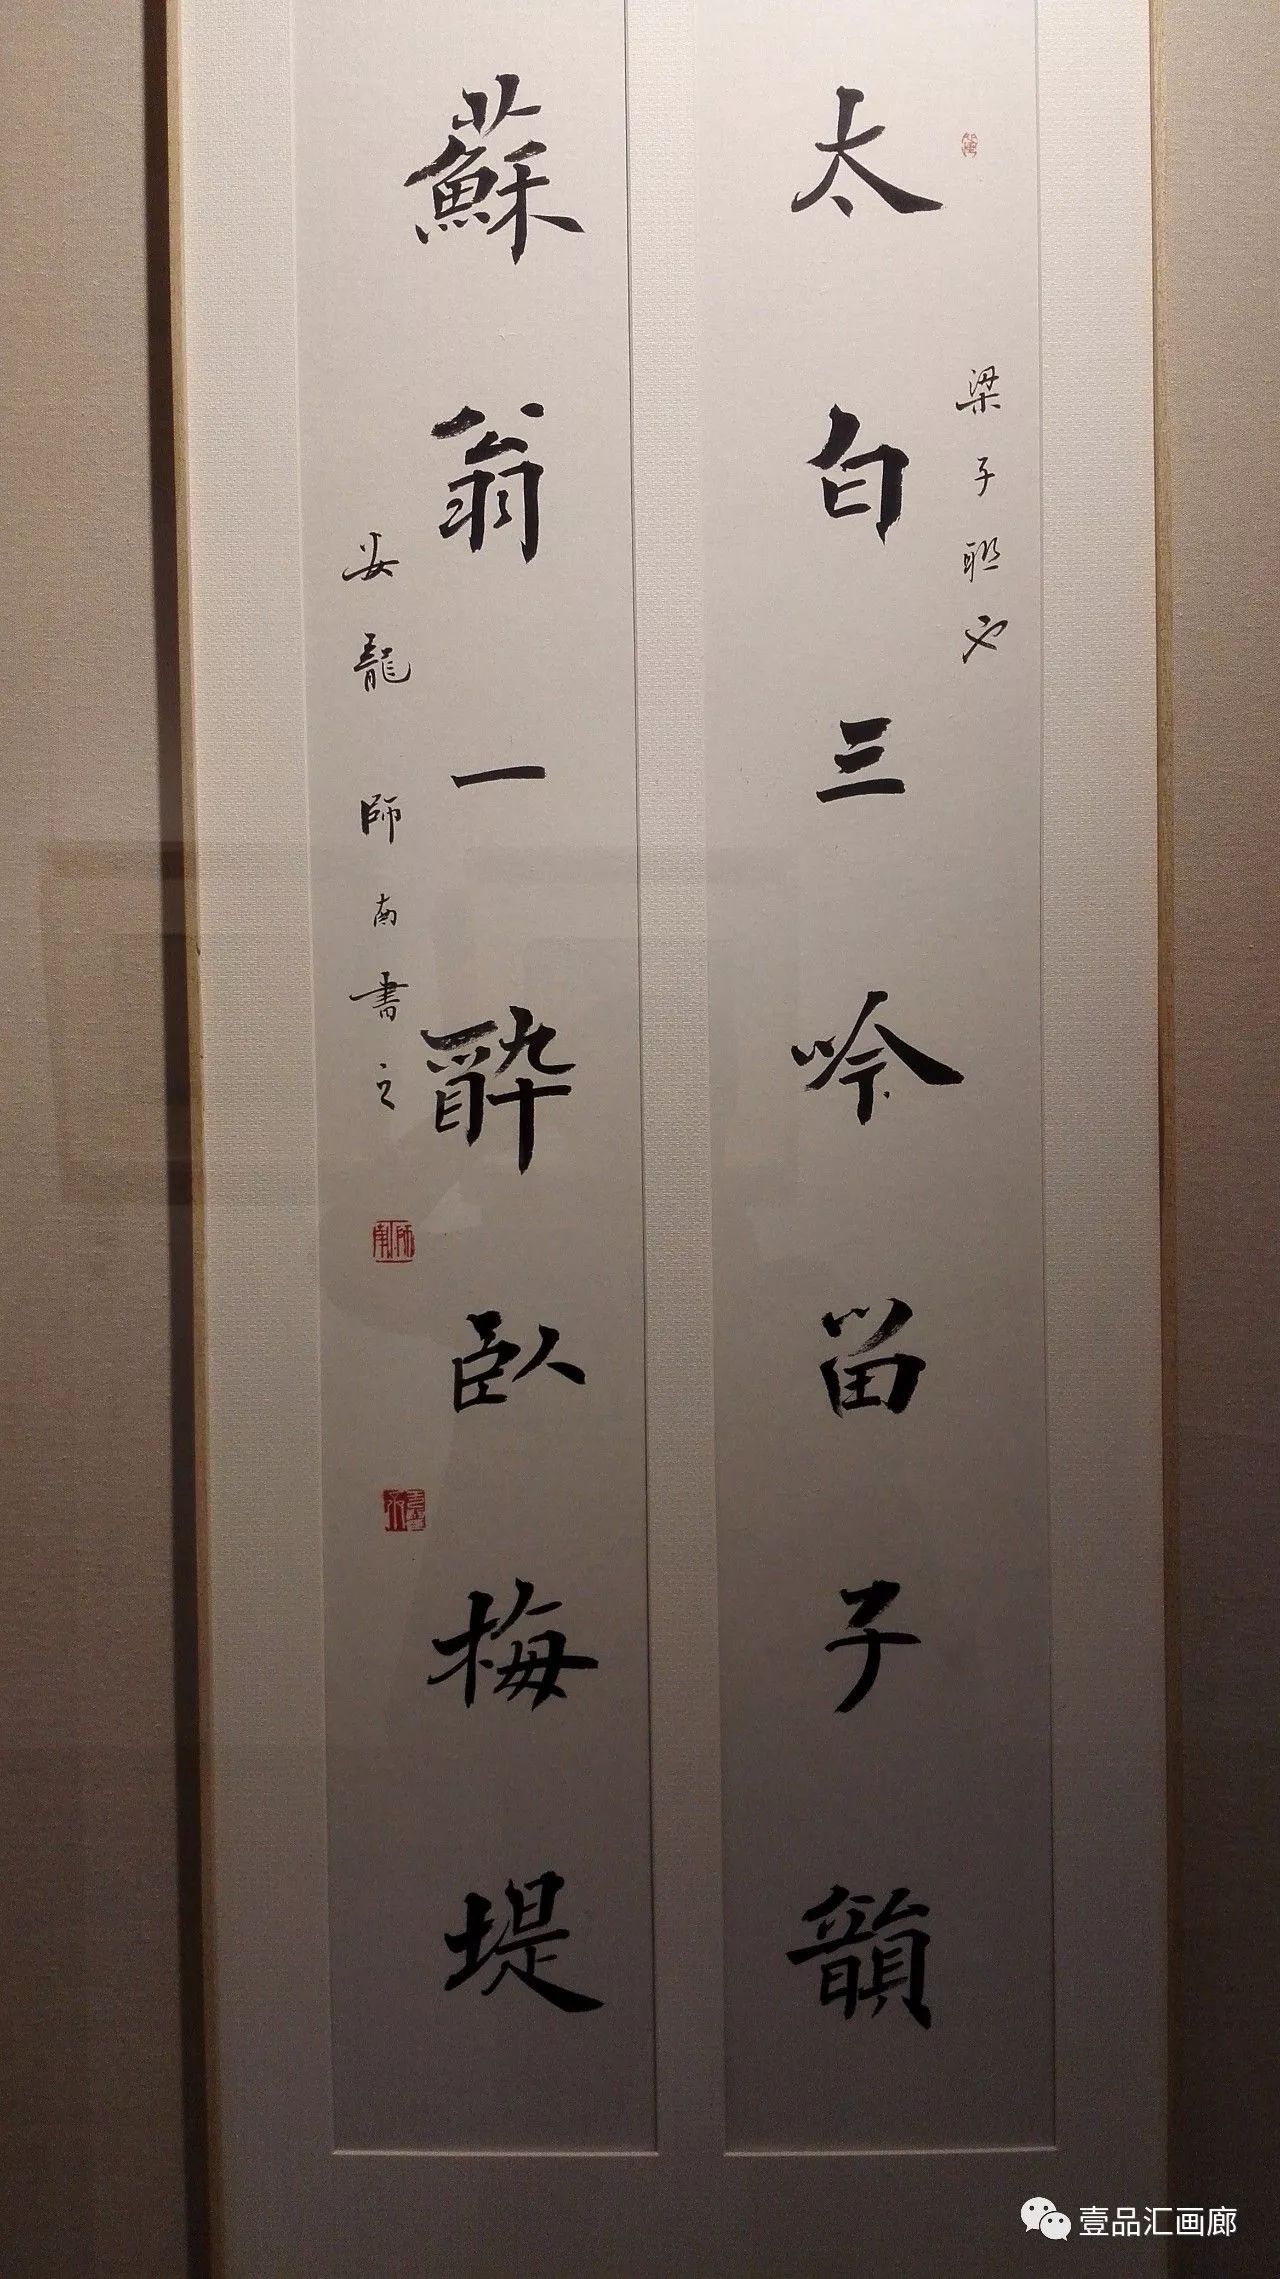 太白三吟留子韻
梁子聯句
蘇翁一醉臥梅堤
安龍師南書之
師南
壹品汇画廊